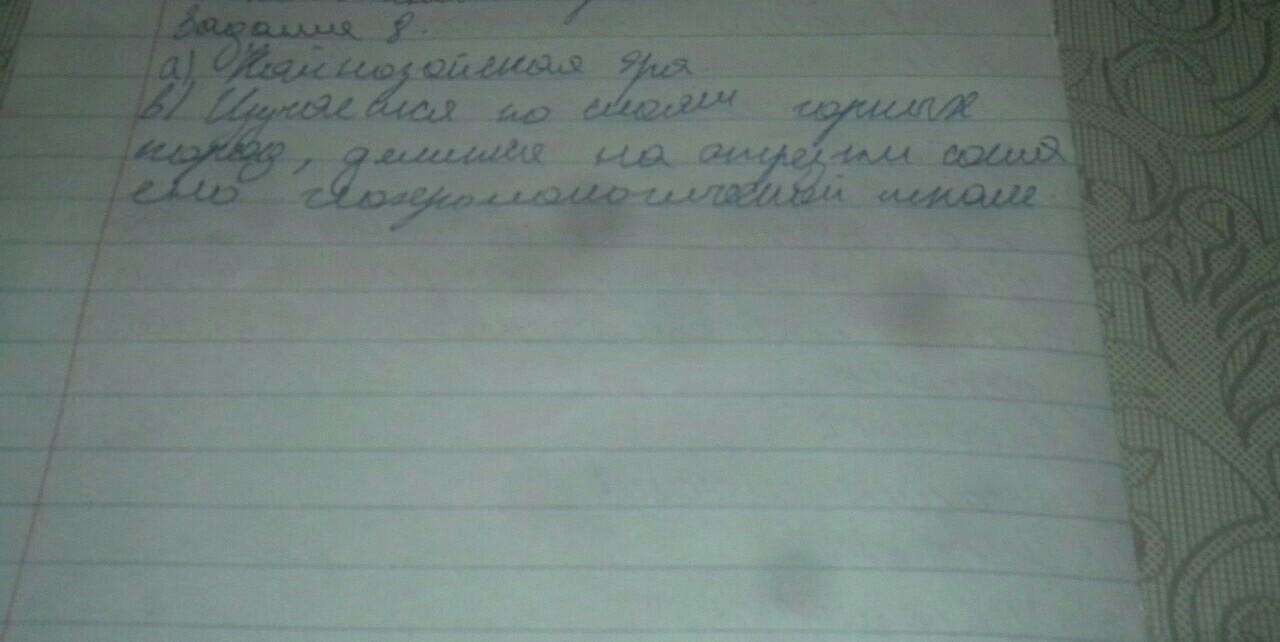 Задание 8.
а) Кайнозойская эра
в) Изучается по слоям горных
пород, делится на отрезки
геохронологической шкале.